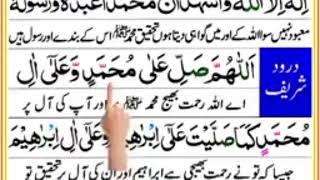 اِلٰهَ اِلَّا اللّٰهُ وَاَشْهَدُ اَنَّ مُحَمَّدًا عَبْدُهٗ وَرَسُوْلُهٗ
معبود نہیں سوا اللہ کے اور میں گواہی دیتا ہوں تحقیق محمد ﷺ اس کے بندے اور رسول ہیں
درود شریف
اَللّٰهُمَّ صَلِّ عَلٰى مُحَمَّدٍ وَّعَلٰٓى اٰلِ
اے اللہ رحمت بھیج محمد ﷺ پر اور آپ کی آل پر
مُحَمَّدٍ كَمَا صَلَّيْتَ عَلٰٓى اِبْرٰهِيْمَ وَعَلٰٓى اٰلِ اِبْرٰهِيْمَ
جیسا کہ تو نے رحمت بھیجی ہے ابراہیم اور ان کی آل پر تحقیق تو